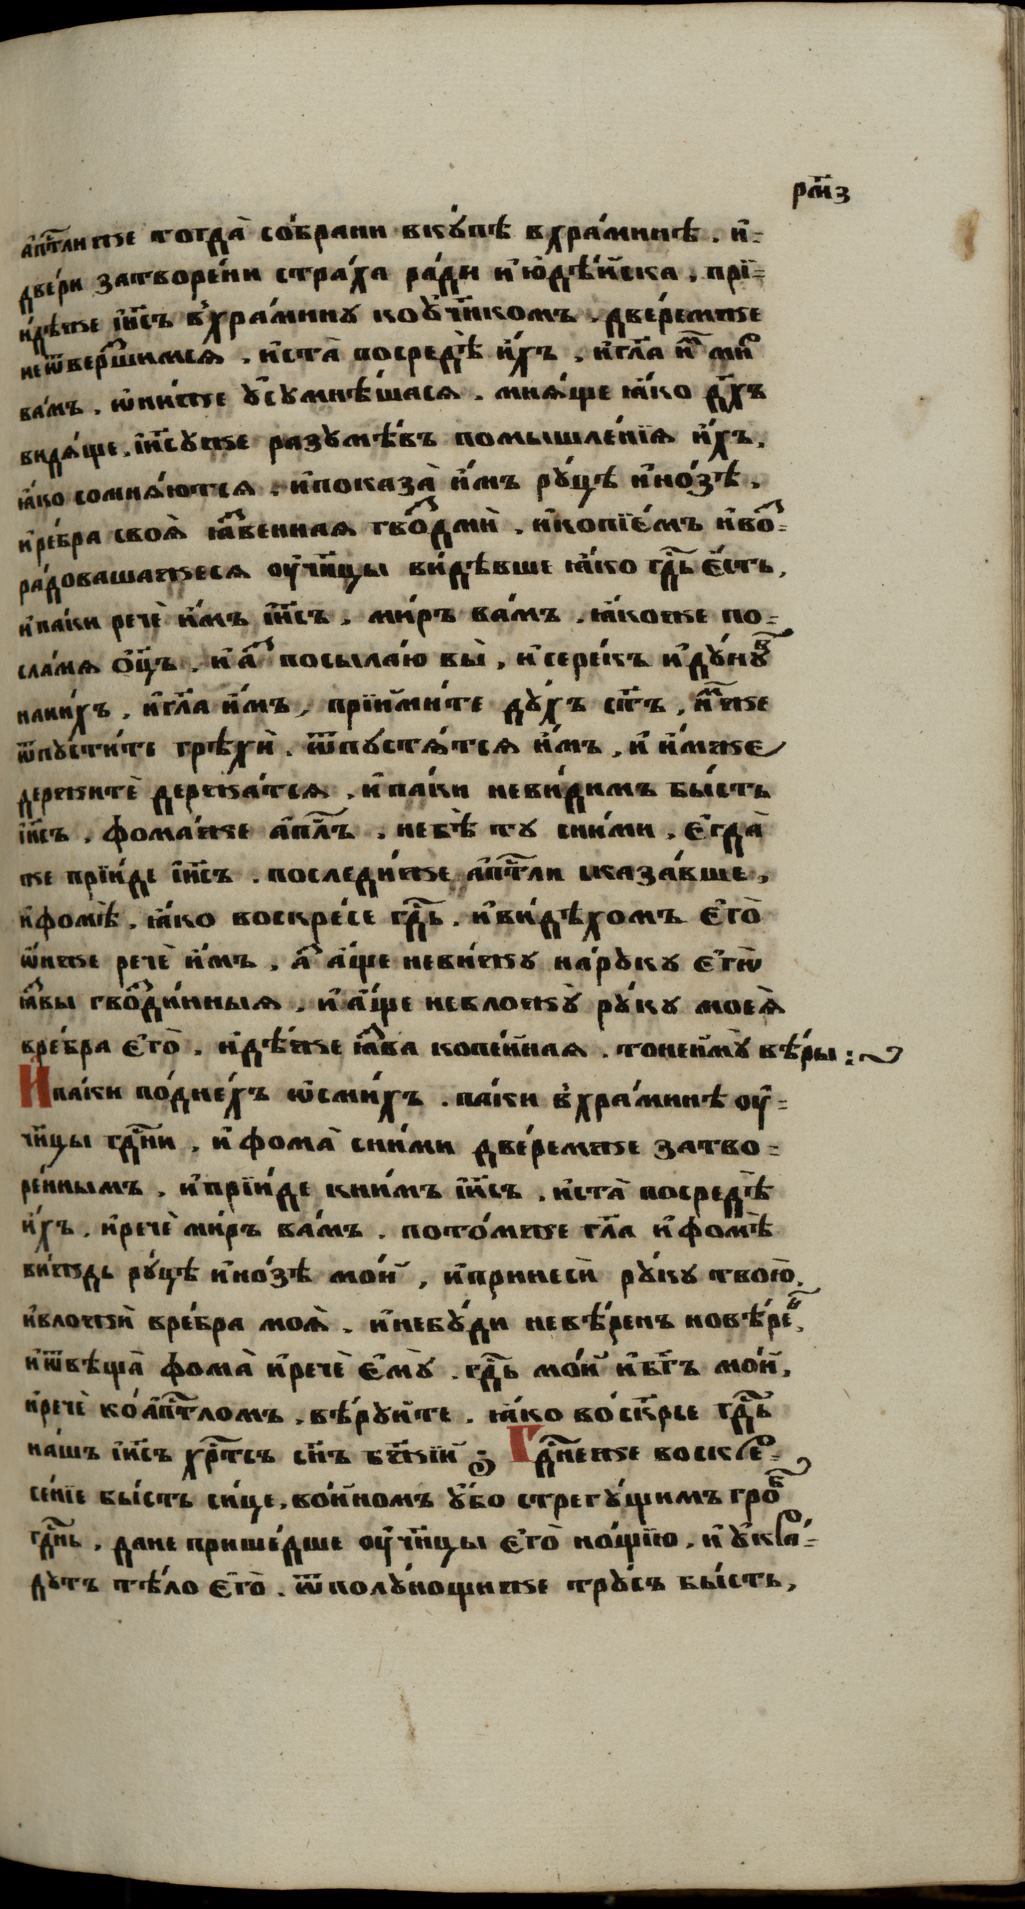 рм҃з
а҆пⷭ҇тлиже тогда̀ со́брани вкꙋ́пѣ вхра́минѣ . и҆-
две́ри затворе́ни стра́ха ра́ди и҆ю҆дѣ́йска , прїи-
и́дѣже і҆и҃съ в̾хра́минꙋ коꙋ҆чн҃комъ . две́ремже
неѿве́ршимся , и҆ста̀ посредѣ̀ и҆́хъ , и҆гл҃а и҆̀ⷨ ми́ⷬ
ва́мъ . ѡ҆ни́же ᲂу҆сꙋмнѣ́шася . мня́ще ꙗ҆́ко дх҃ъ
видя́ще . і҆и҃сꙋже разꙋмѣ́въ помышле́нїя и҆́хъ ,
ꙗ҆́ко сомня́ются . и҆показа̀ и҆́мъ рꙋ́цѣ и҆но́зѣ ,
и҆ре́бра своя̀ ꙗ҆́звенная гво́здмѝ . и҆копїе́мъ и҆во́з-
ра́довашажеся ᲂу҆чн҃цы ви́дѣвше ꙗ҆́ко гдⷭ҇ь є҆́сть ,
и҆па́ки речѐ и҆́мъ і҆и҃съ . ми́ръ ва́мъ . ꙗ҆́коже по-
сла́мя ѻ҆ц҃ъ . и҆ а҆́зъ посыла́ю вы̀ , и҆ сере́къ и҆дꙋ́нꙋⷡ
нани́хъ , и҆гл҃а и҆́мъ , прїими́те дꙋ́хъ ст҃ъ , и҆́мже
ѿпꙋсти́те грѣхѝ . ѿпꙋстя́тся и҆́мъ , и҆ и҆́мже
держитѐ держа́тся , и҆па́ки неви́димъ бы́сть
і҆и҃съ . фома́же а҆пⷭ҇лъ . небѣ̀ тꙋ сни́ми , є҆гда̀
же прїи́де і҆и҃съ . последи́же а҆пⷭ҇тли сказа́вше ,
и҆фомѣ̀ . ꙗ҆́ко воскре́се гдⷭ҇ь . и҆ви́дѣхомъ є҆го̀
ѡ҆́нже речѐ и҆́мъ , а҆́зъ а҆́ще неви́жꙋ на́рꙋкꙋ є҆гѡ̀
ꙗ҆́звы гвозди́нныя , и҆ а҆́ще невложꙋ̀ рꙋ́кꙋ моея̀
вре́бра є҆го̀ . и҆дѣ́же ꙗ҆́зва копе́йная . тонеимꙋ̀ вѣ́ры :~
И҆па́ки по́днехъ ѡ҆сми́хъ . па́ки в̾хра́минѣ ᲂу҆-
чн҃цы гдⷭ҇ни , и҆ фома̀ сни́ми две́ремже затво-
ре́ннымъ , и҆прїи́де кни́мъ і҆и҃съ , и҆ста̀ посредѣ̀
и҆́хъ , и҆речѐ ми́ръ ва́мъ . пото́мже гл҃а и҆фомѣ̀
ви́ждь рꙋ́цѣ и҆но́зѣ мои́ , и҆принесѝ рꙋ́кꙋ твою̀ ,
и҆вложѝ вре́бра моя̀ . и҆небꙋ́ди невѣ́ренъ новѣ́реⷩ҇ ,
и҆ѿвѣща̀ фома̀ и҆речѐ є҆мꙋ̀ . гдⷭ҇ь мо́й и҆бг҃ъ мо́й ,
и҆речѐ ко́а҆пⷭ҇тломъ . вѣ́рꙋйте . ꙗ҆́ко во́скрⷭ҇се гдⷭ҇ь
на́шъ і҆и҃съ хрⷭ҇тсъ сн҃ъ бж҃їй ; Гдⷭ҇неже воскре-
се́нїе бы́сть си́це . во́йномъ ᲂу҆́бо стрегꙋ́щимъ гро́ⷠ
гдⷭ҇нь , дане прише́дше ᲂу҆чн҃цы є҆го̀ но́щїю , и҆ ᲂу҆кра́-
дꙋтъ тѣ́ло є҆го̀ . ѿполꙋ́нощиже трꙋ́съ бы́сть ,